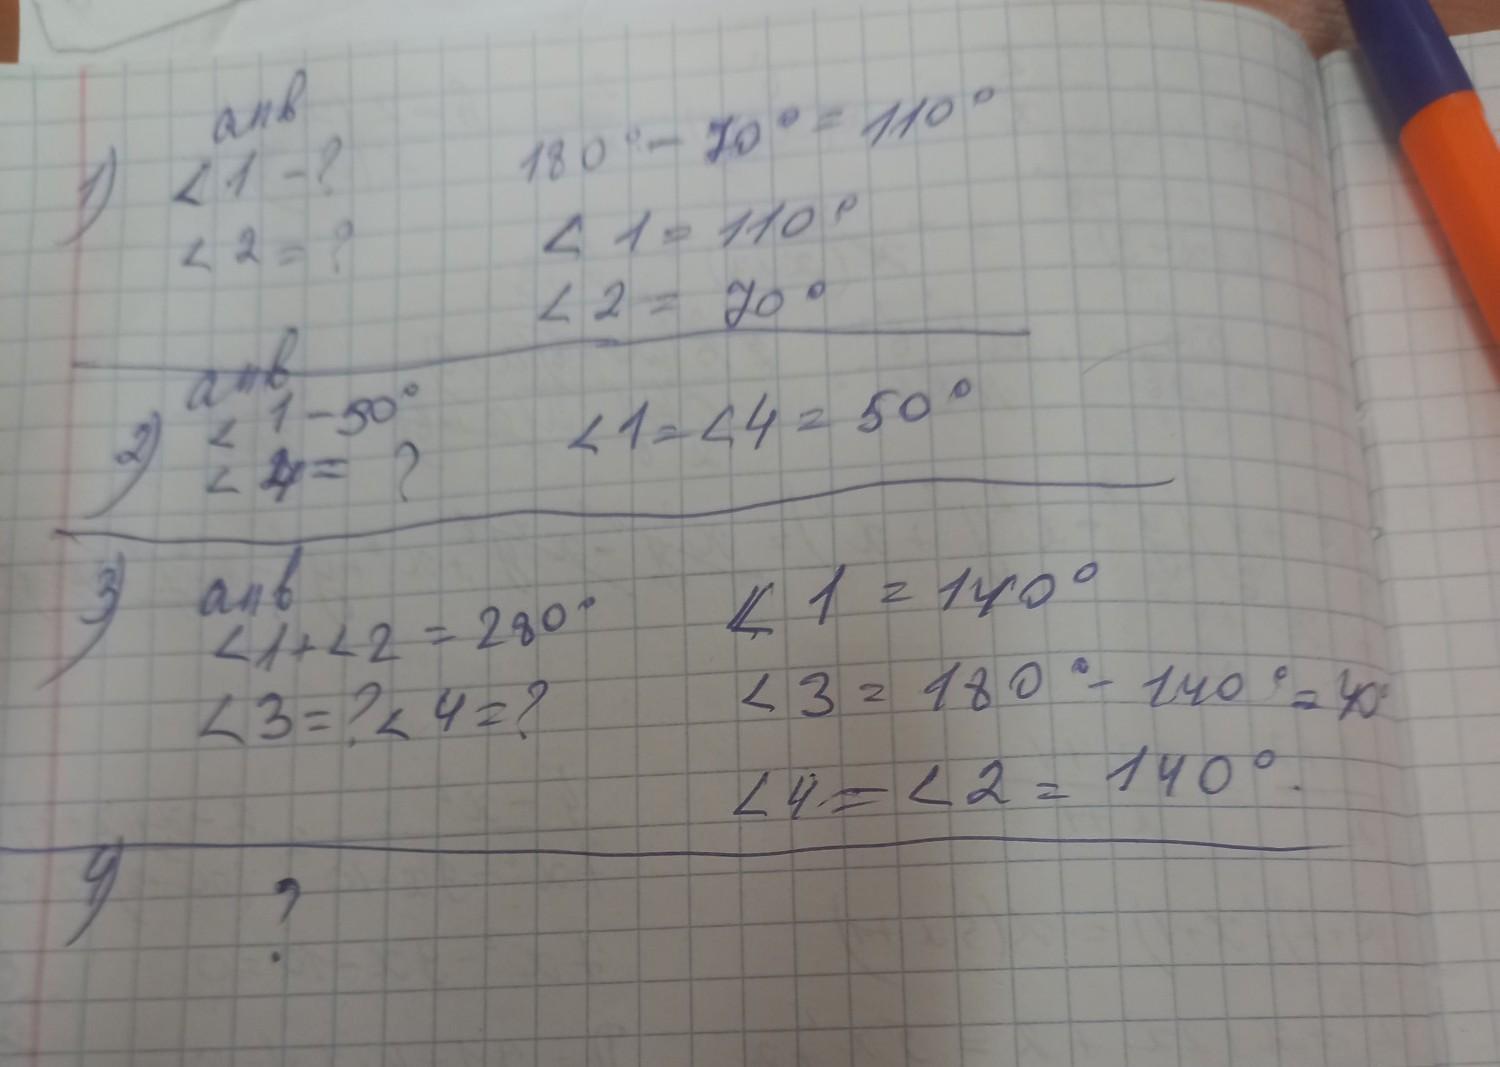 1) апв
<1 - ?
<2 = ?
180° - 70° = 110°
<1 = 110°
<2 = 70°
2) апв
<1 - 50°
<4 = ?
<1 = <4 = 50°
3) апв
<1 + <2 = 280°
<3 = ? <4 = ?
<1 = 140°
<3 = 180° - 140° = 40°
<4 = <2 = 140°.
4) ?